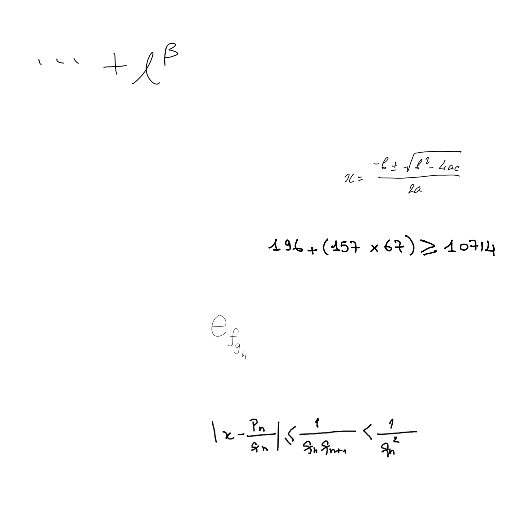 ... + l^β
x = \frac{-b ± \sqrt{b^2 - 4ac}}{2a}
196 + (157 × 67) ≥ 10714
e_{f_{g_h}}
|x - \frac{p_n}{q_n}| ≤ \frac{1}{q_n q_{n+1}} < \frac{1}{q_n^2}